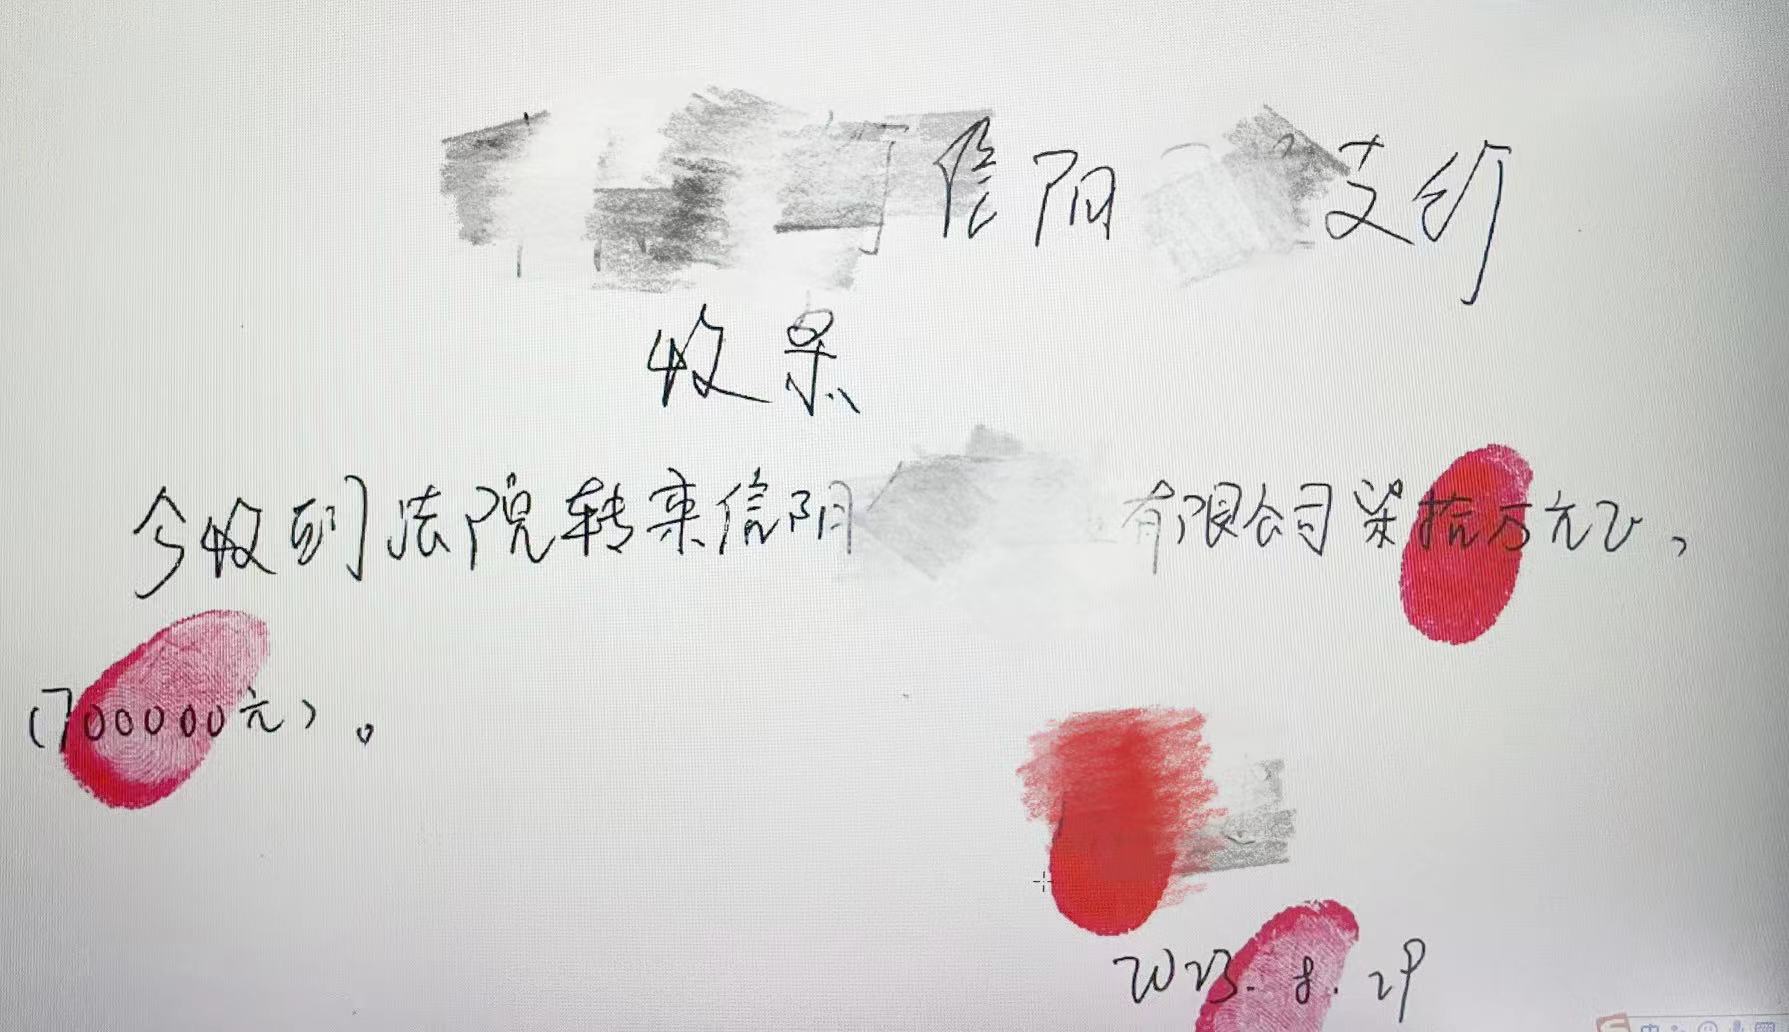 信阳 支行
收条
今收到法院转来信阳 有限公司柒拾万元正,
(700000元)。
2023.8.29